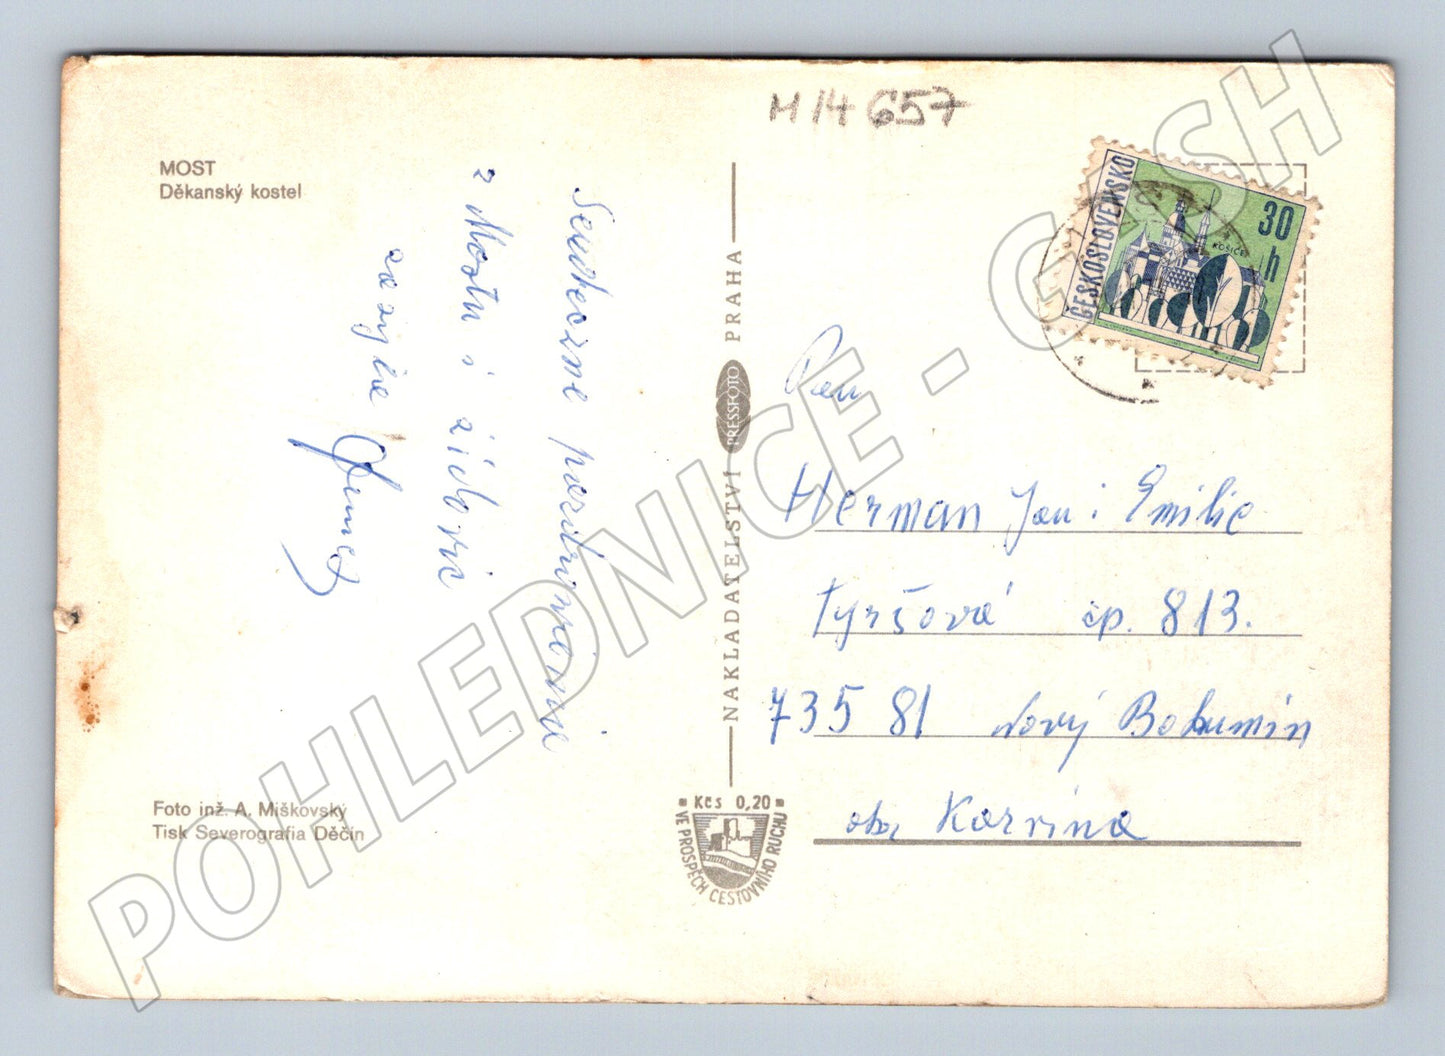 M 14 657
MOST
Děkanský kostel
Srdečné pozdravení
z Mostu
zasílá
Foto inž. A. Miškovský
Tisk Severografia Děčín
NAKLADATELSTVÍ PRESSFOTO PRAHA
Kčs 0,20
VE PROSPĚCH CESTOVNÍHO RUCHU
ČESKOSLOVENSKO
30 h
KOŠICE
Pan
Herman Jan i Emilie
Tyršová čp. 813.
735 81 Nový Bohumín
okr Karvina
POHLEDNICE - CASH